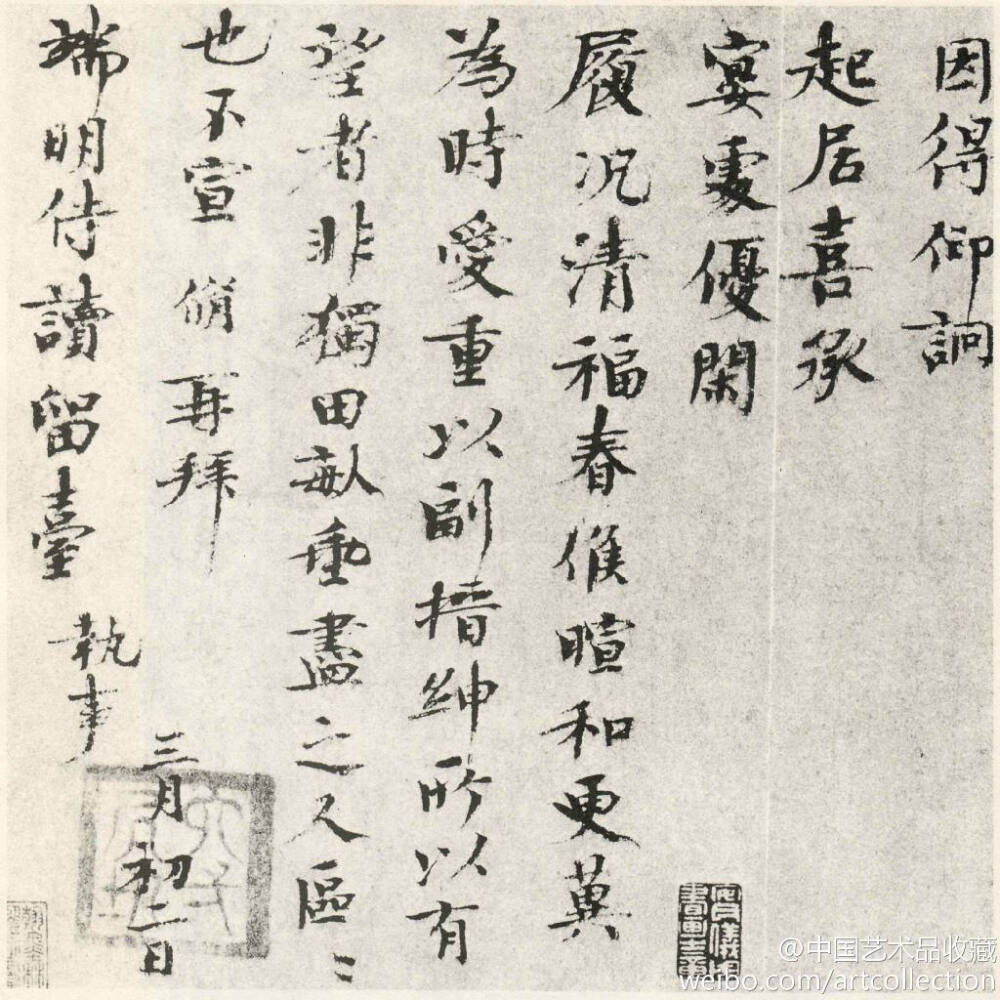 因得仰詗
起居喜承
宴處優閑
履況清福春候暄和更冀
為時愛重以副搢紳所以有
望者非獨田畝垂盡之人區〻
也不宣 脩再拜
端明侍讀留臺 執事
三月初二日
@中国艺术品收藏
weibo.com/artcollection